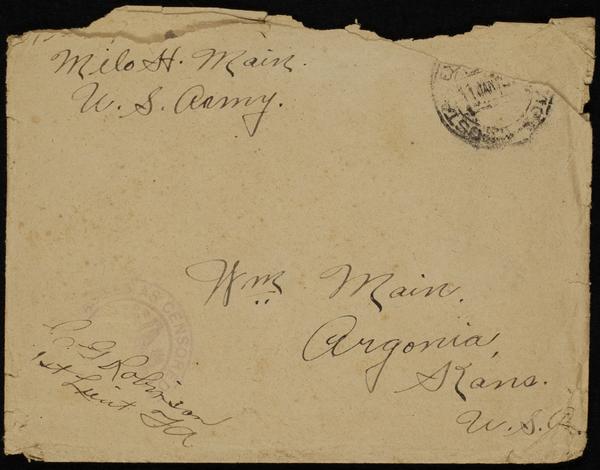 Milo H. Main.
U. S. Army.
11 JAN
Wm Main.
Argonia,
Kans.
U. S. A.
CENSOR
C G Robinson
1st Lieut FA